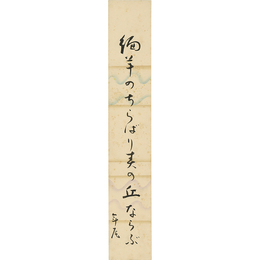 緬羊のちらばり春の丘ならぶ